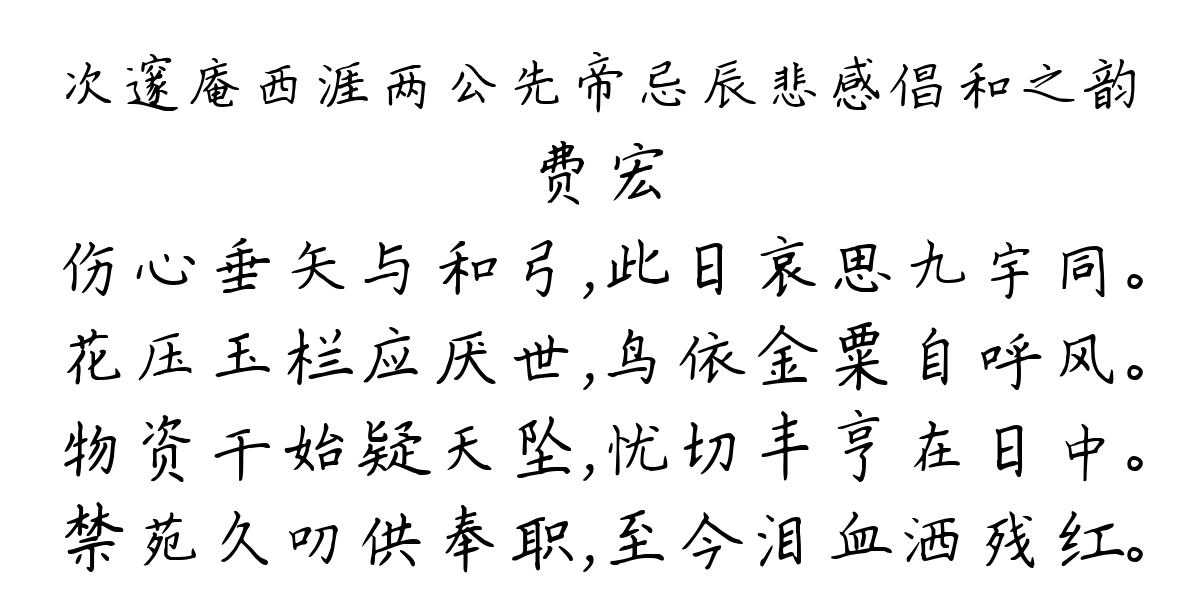 次邃庵西涯两公先帝忌辰悲感倡和之韵
费宏
伤心垂矢与和弓,此日哀思九宇同。
花压玉栏应厌世,鸟依金粟自呼风。
物资干始疑天坠,忧切丰亨在日中。
禁苑久叨供奉职,至今泪血洒残红。